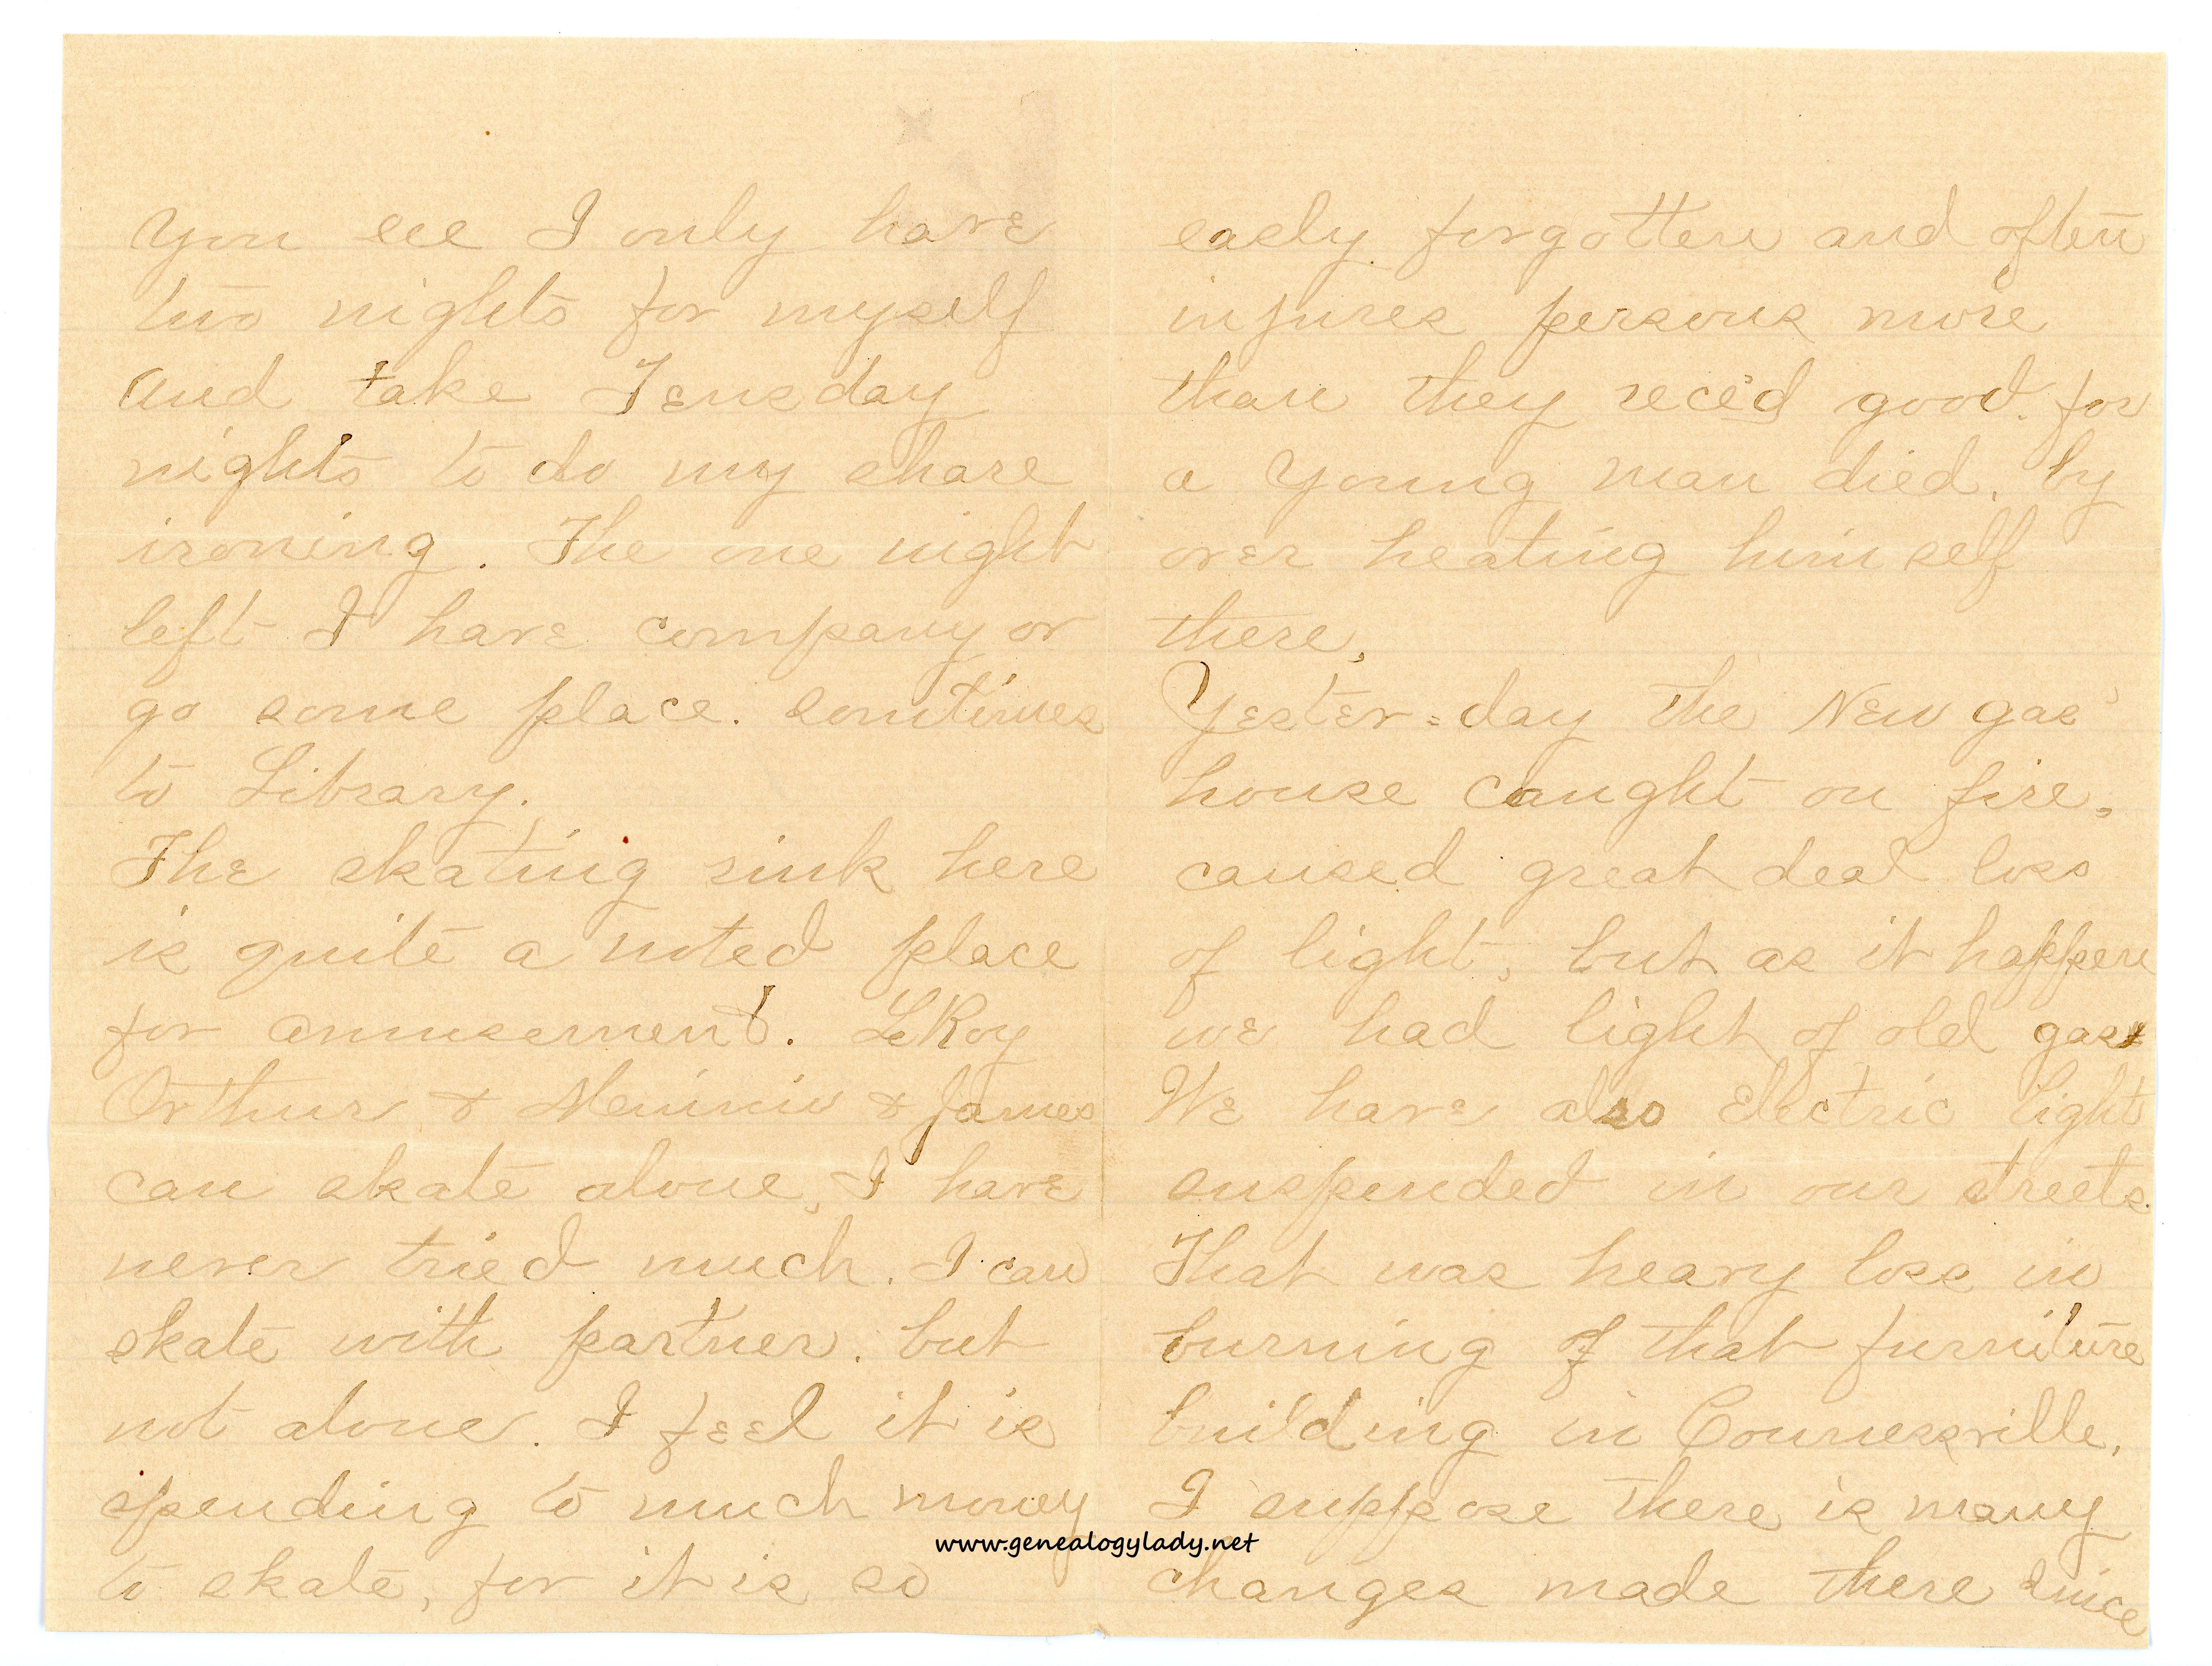 you see I only have
two nights for myself
and take Teusday
nights to do my share
ironing. The one night
left I have company or
go some place. somtimes
to Library.
The skating rink here
is quite a noted place
for amusement. LeRoy
Arthur & Minnie & James
can skate alone, I have
never tried much. I can
skate with partner. but
not alone. I feel it is
spending to much money
to skate, for it is so
easly forgotten and often
injures persons more
than they rece'd good. for
a young man died, by
over heating him self
there,
Yester=day the New gas
house caught on fire,
caused great deal loss
of light, but as it happen
we had light of old gas
We have also Electric light
suspended in our streets.
That was heavy loss in
burning of that furniture
building in Connersville,
I suppose there is many
changes made there since
www.genealogylady.net